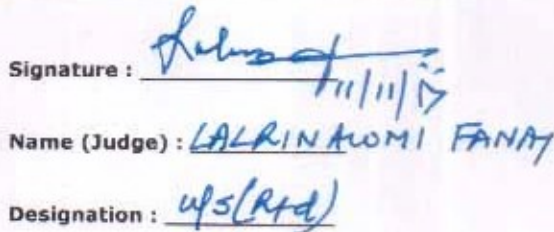 Signature :
11/11/17
Name (Judge) : LALRINAWOMI FANAI
Designation : U/S (Rtd)